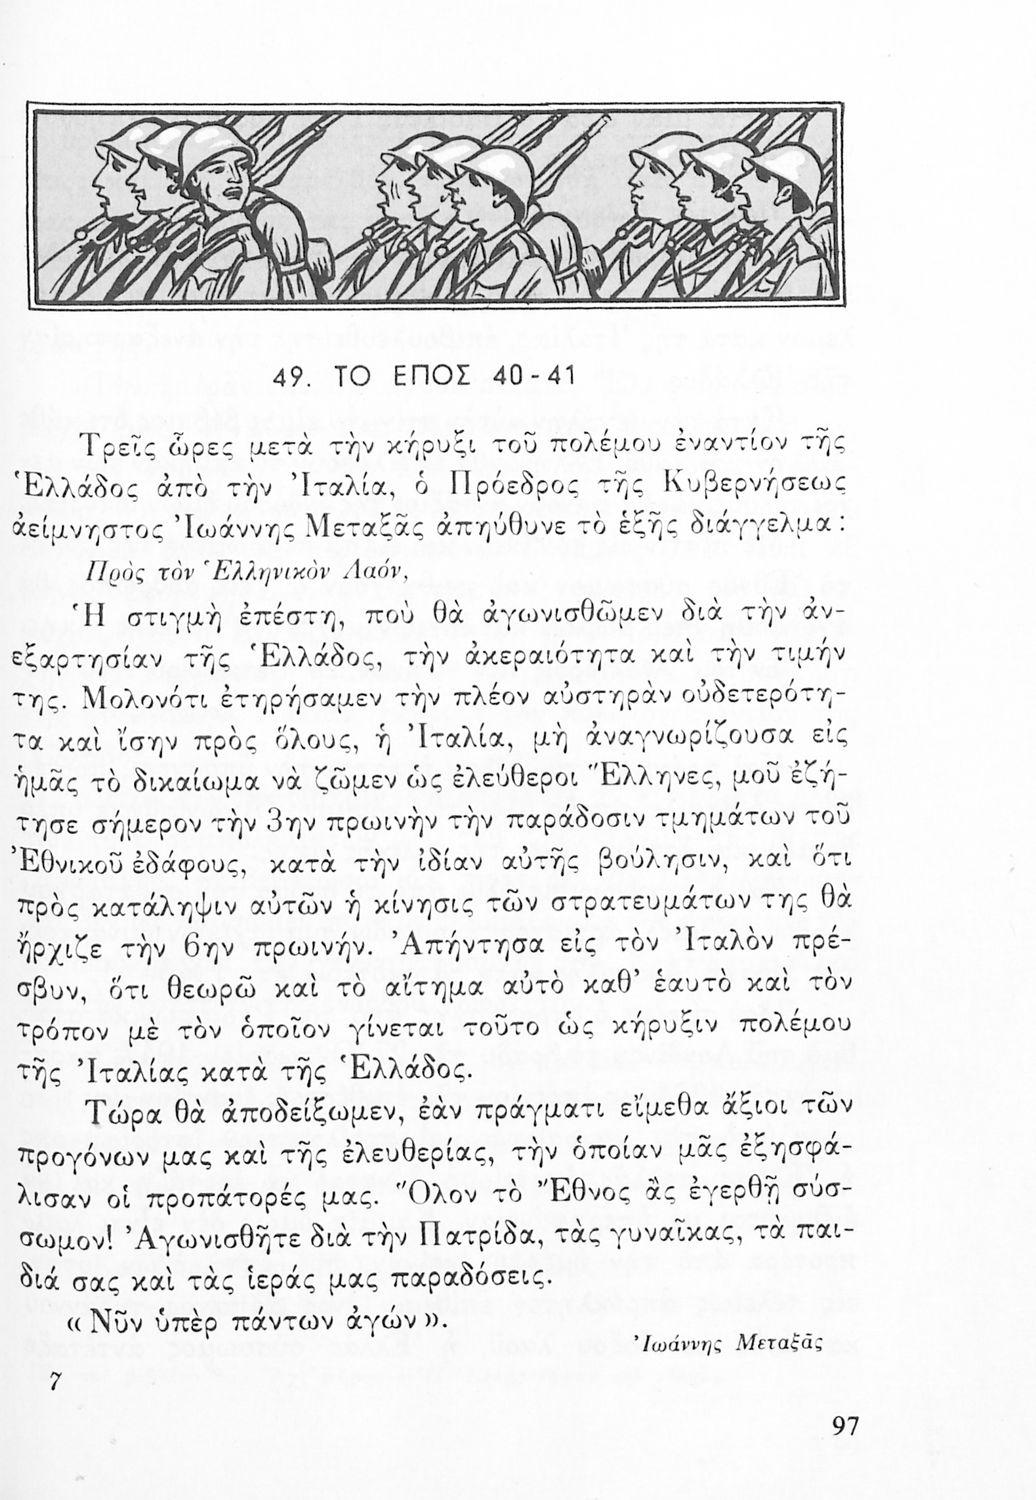 49. ΤΟ ΕΠΟΣ 40-41
Τρεῖς ὧρες μετὰ τὴν κήρυξι τοῦ πολέμου ἐναντίον τῆς
Ἑλλάδος ἀπὸ τὴν Ἰταλία, ὁ Πρόεδρος τῆς Κυβερνήσεως
ἀείμνηστος Ἰωάννης Μεταξᾶς ἀπηύθυνε τὸ ἑξῆς διάγγελμα:
Πρὸς τὸν Ἑλληνικὸν Λαόν,
Ἡ στιγμὴ ἐπέστη, ποὺ θὰ ἀγωνισθῶμεν διὰ τὴν ἀν-
εξαρτησίαν τῆς Ἑλλάδος, τὴν ἀκεραιότητα καὶ τὴν τιμήν
της. Μολονότι ἐτηρήσαμεν τὴν πλέον αὐστηρὰν οὐδετερότη-
τα καὶ ἴσην πρὸς ὅλους, ἡ Ἰταλία, μὴ ἀναγνωρίζουσα εἰς
ἡμᾶς τὸ δικαίωμα νὰ ζῶμεν ὡς ἐλεύθεροι Ἕλληνες, μοῦ ἐζή-
τησε σήμερον τὴν 3ην πρωινὴν τὴν παράδοσιν τμημάτων τοῦ
Ἐθνικοῦ ἐδάφους, κατὰ τὴν ἰδίαν αὐτῆς βούλησιν, καὶ ὅτι
πρὸς κατάληψιν αὐτῶν ἡ κίνησις τῶν στρατευμάτων της θὰ
ἤρχιζε τὴν 6ην πρωινήν. Ἀπήντησα εἰς τὸν Ἰταλὸν πρέ-
σβυν, ὅτι θεωρῶ καὶ τὸ αἴτημα αὐτὸ καθ’ ἑαυτὸ καὶ τὸν
τρόπον μὲ τὸν ὁποῖον γίνεται τοῦτο ὡς κήρυξιν πολέμου
τῆς Ἰταλίας κατὰ τῆς Ἑλλάδος.
Τώρα θὰ ἀποδείξωμεν, ἐὰν πράγματι εἴμεθα ἄξιοι τῶν
προγόνων μας καὶ τῆς ἐλευθερίας, τὴν ὁποίαν μᾶς ἐξησφά-
λισαν οἱ προπάτορές μας. Ὅλον τὸ Ἔθνος ἂς ἐγερθῇ σύσ-
σωμον! Ἀγωνισθῆτε διὰ τὴν Πατρίδα, τὰς γυναῖκας, τὰ παι-
διά σας καὶ τὰς ἱεράς μας παραδόσεις.
« Νῦν ὑπὲρ πάντων ἀγών ».
Ἰωάννης Μεταξᾶς
7
97